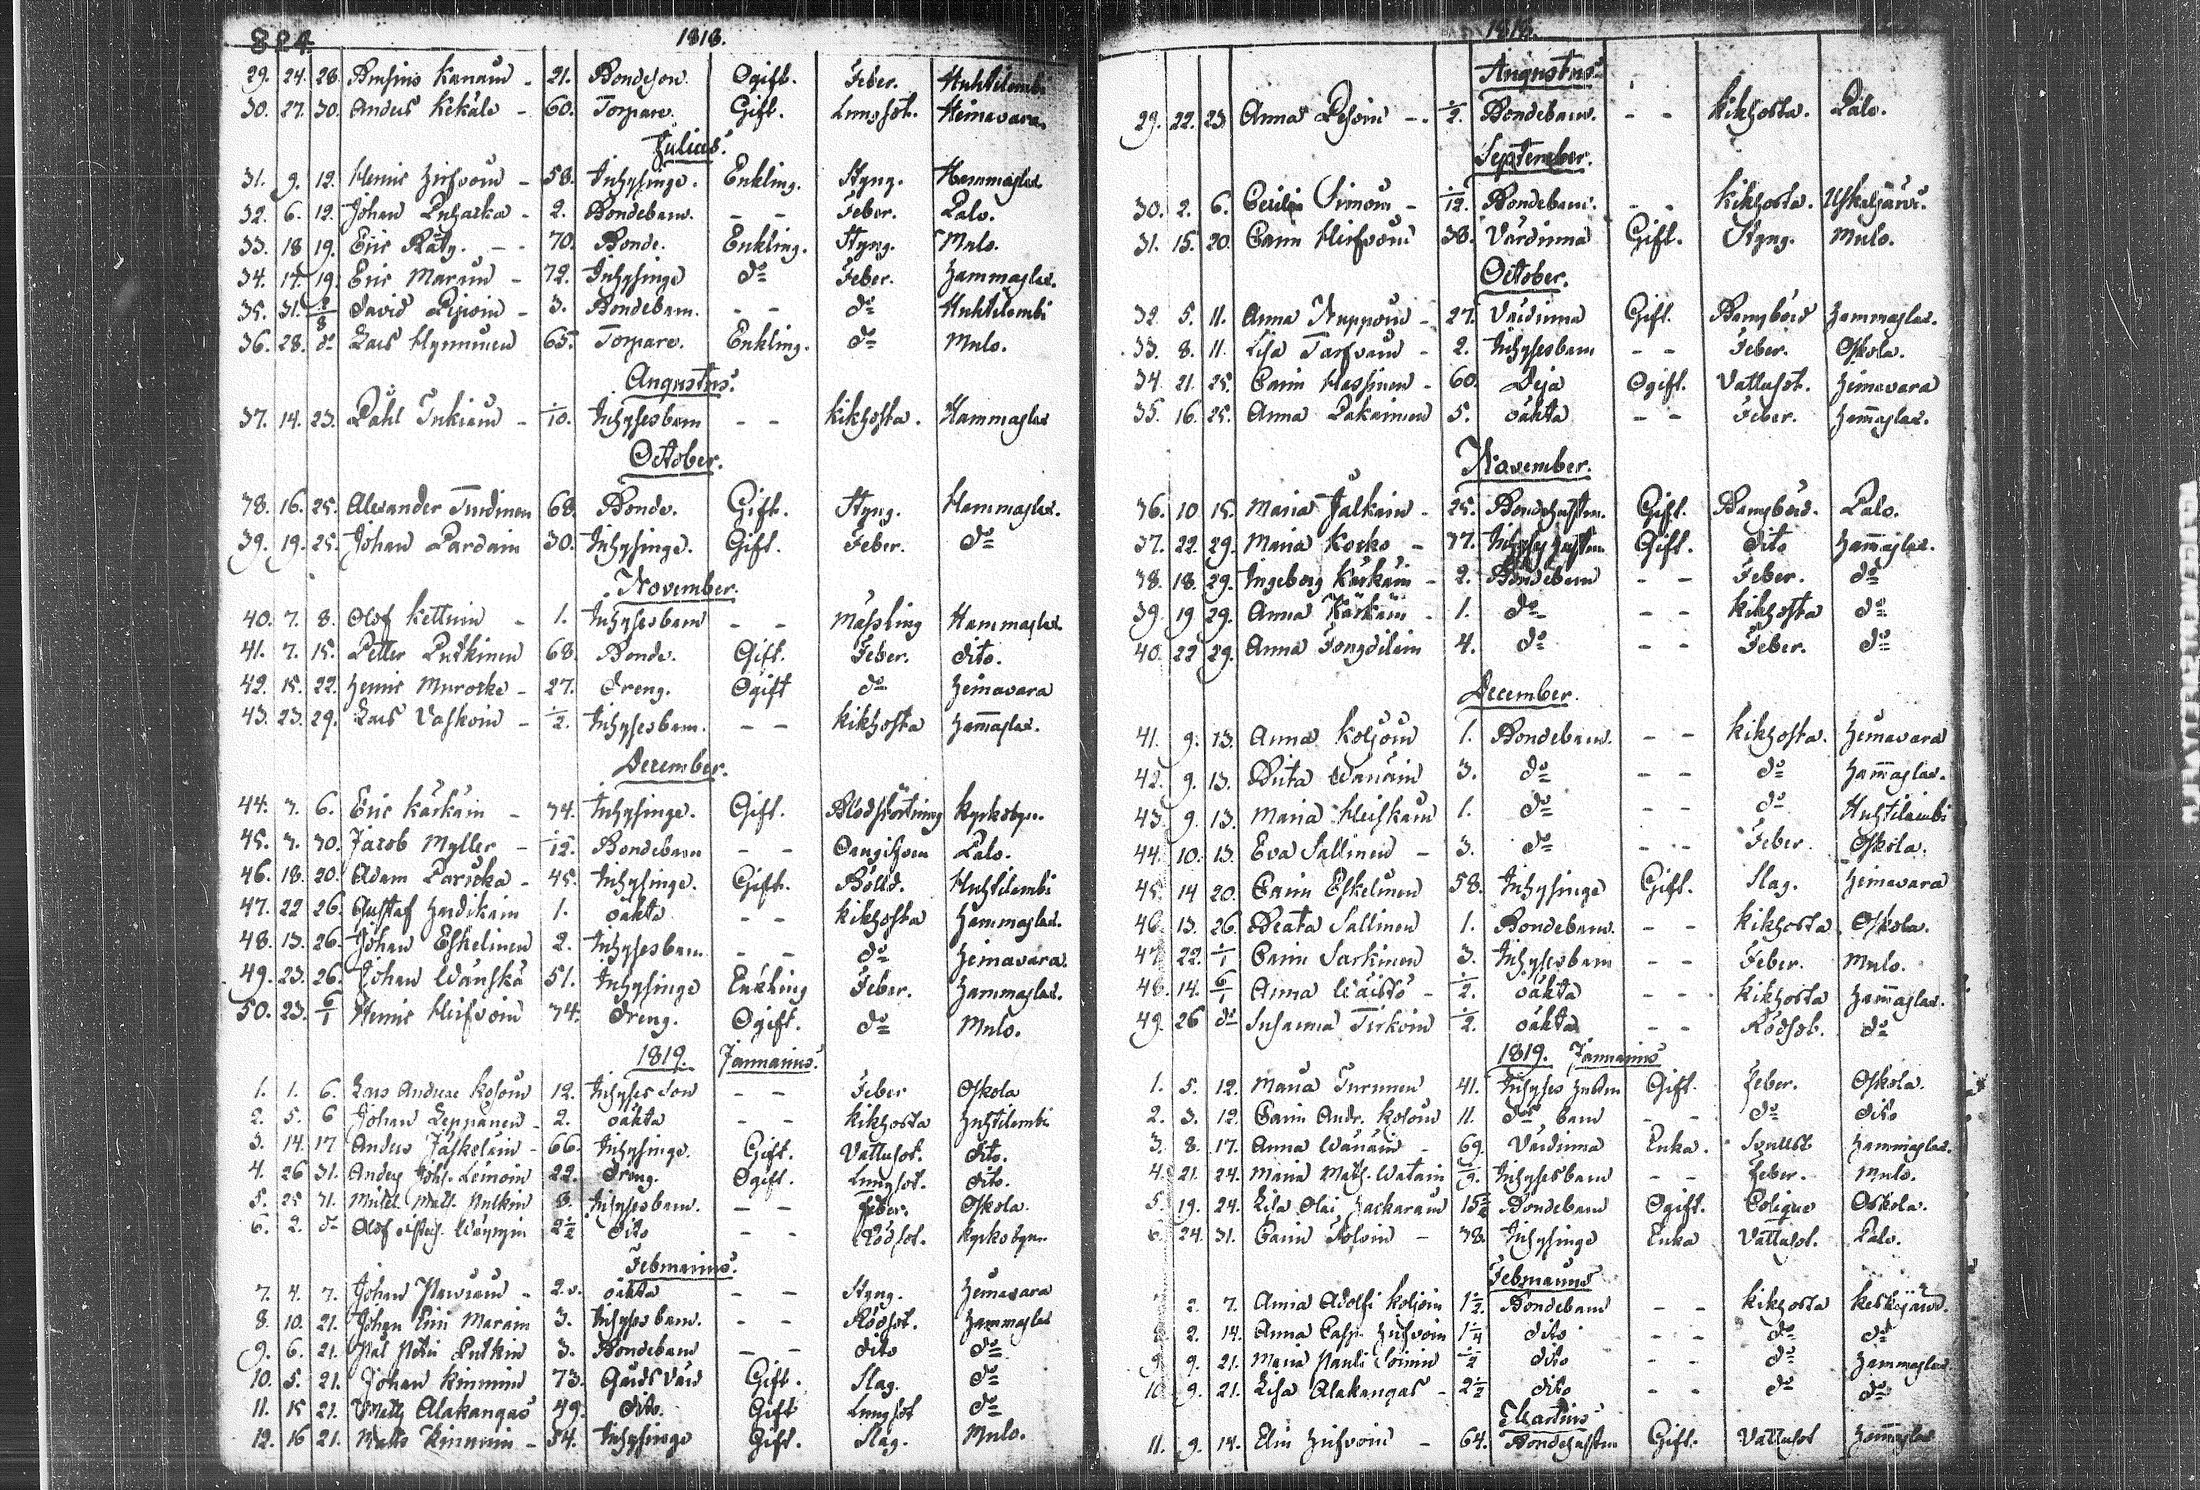 824.
1818.
29. 24. 28. Kanain - 21. Bondeson. Ogift. Feber. Huhtilambi
30. 27. 30. Anders Kekäle - 60. Torpare. Gift. Lungsot. Heinavara.
Julius.
31. 9. 12. Henric Hirfvoin - 58. Inhysinge. Enkling. Styng. Hammaslax.
32. 6. 12. Johan Puharka - 2. Bondebarn. - - Feber. Palo.
33. 18 19. Eric Räty. - - 70. Bonde. Enkling. Styng. Mulo.
34. 14. 19. Eric Marain - 72. Inhysinge do Feber. Hammaslax.
35. 31. 2/8 David Pesoin - 3. Bondebarn. - - do Huhtilambi
36. 28. do Lars Hynninen 65. Torpare. Enkling. do Mulo.
Augustus.
37. 14. 23. Påhl Inkiain - 1/10. Inhysesbarn - - Kikhosta. Hammaslax
October.
38. 16. 25. Alexander Tuidinen 68. Bonde. Gift. Styng. Hammaslax.
39. 19. 25. Johan Pardain 30. Inhysinge. Gift. Feber. do
November.
40. 7. 8. Olof Kettuin - 1. Inhysesbarn - - Mässling Hammaslax.
41. 7. 15. Petter Putkinen 68. Bonde. Gift. Feber. dito.
42. 15. 22. Henric Muroske - 27. Dreng. Ogift do Heinavara
43. 23. 29. Lars Vaskoin - 1/2. Inhysesbarn. - - Kikhosta Hammaslax.
December.
44. 3. 6. Eric Kärkäin - 74. Inhysinge. Gift. Blodstörtning Kyrkobyn.
45. 3. 30. Jacob Myller - 1/12. Bondebarn - - Palo.
46. 18. 20. Adam Parucka - 45. Inhysinge. Gift. Bölld. Huhtilambi
47. 22 26. Gustaf Hardikain 1. oäkta - - Kikhosta Hammaslax.
48. 13. 26. Johan Eskelinen 2. Inhysesbarn - - do Heinavara.
49. 23. 26. Johan Wänskä 51. Inhysinge Enkling Feber. Hammaslax.
50. 23. 6/1 Henric Hirfvoin 74. Dreng. Ogift. do Mulo.
1819. Januarius.
1. 1. 6. Lars Andreae Kosoin 12. Inhyses Son - - Feber Oskola
2. 5. 6 Johan Leppänen - 2. oäkta - - Kikhosta Huhtilambi
3. 14. 17 Anders Jäskeläin - 66. Inhysinge. Gift. Vattusot. dito.
4. 26 31. Anders Joh. Lemoin 22. Dreng. Ogift. Lungsot. dito.
5. 25 31. Michel Matt. Nutkin 8. Inhysesbarn. - - Feber. Oskola.
6. 2. do Olof 2 1/2 dito - - Rödsot. Kyrkobyn.
Februarius.
7. 4. 7. Johan - 2. oäkta - - Styng. Heinavara
8. 10. 21. Johan Erici Marain 3. Inhysesbarn. - - Rödsot. Hammaslax
9. 6. 21. Pål Petri Putkin 3. Bondebarn - - dito do
10. 5. 21. Johan Kinnuin 73. Gårdsvärd Gift. Slag. do
11. 15 21. Matts Alakangas 49. dito. Gift Lungsot do
12. 16 21. Matts Kinnuin - 54. Inhysinge Gift. Slag. Mulo.
1818.
Augustus.
29. 22. 23. Anna Pesoin - 1/2. Bondebarn. - - Kikhosta. Palo.
September.
30. 2. 6. Cecilia Simoin - 1/12. Bondebarn. - - Kikhosta. Uskaljärvi.
31. 15. 20. Carin Hirfvoin 38. Värdinna Gift. Styng. Mulo.
October.
32. 5. 11. Anna Nuppoin - 27. Värdinna Gift. Barnsbörd Hammaslax.
33. 8. 11. Lisa Tarfvain - 2. Inhysesbarn - - Feber. Oskola.
34. 21. 25. Carin Hassinen - 60. Deja Ogift. Vattusot. Heinavara
35. 16. 25. Anna Pakarinen 5. oäkta - - Feber. Hammaslax.
November.
36. 10 15. Maria Jalkain - 25. Bondehustru. Gift. Barnsbörd. Palo.
37. 22. 29. Maria Kocko - 37. Inhyses hustru Gift. dito Hammaslax.
38. 18. 29. Ingeborg Kärkäin - 2. Bondebarn - - Feber. do
39. 19 29. Anna Kärkäin - 1. do - - Kikhosta do
40. 22 29. Anna 4. do - - Feber. do
December.
41. 9. 13. Anna Koljoin 1. Bondebarn. - - Kikhosta. Heinavara
42. 9. 13. Brita Wänäin 3. do - - do Hammaslax.
43. 9. 13. Maria Heiskain 1. do - - do Huhtilambi
44. 10. 13. Eva Sallinen - 3. do - - Feber. Oskola.
45. 14 20. Carin Eskelinen 58. Inhysinge Gift. Slag. Heinavara
46. 13. 26. Beata Sallinen 1. Bondebarn. - - Kikhosta. Oskola.
47. 22. 1/1 Carin Sarkinen 3. Inhysesbarn - - Feber. Mulo.
48. 14. 6/1 Anna Wäistö - 1/2. oäkta - - Kikhosta Hammaslax.
49. 26 do Susanna Tirkoin 1/2. oäkta - - Rödsot. do
1819. Januarius
1. 5. 12. Maria Turunen 41. Inhyses hustru Gift. Feber. Oskola.
2. 3. 12. Carin Andr. Kosoin 11. do barn - - do dito
3. 8. 17. Anna Wänäin - 69. Värdinna Enka. Hammaslax.
4. 21. 24. Maria Math. Watain Inhysesbarn - - Feber. Mulo.
5. 19. 24. Lisa Olai Zackarain 15 1/2 Bondebarn Ogift. Colique Oskola.
6. 24. 31. Carin Toloin - 38. Inhysinge Enka Vattusot. Palo.
Februarius
2. 7. Anna Adolfi Koljoin 1 1/2. Bondebarn - - Kikhosta
8 2. 14. Anna Casp. Hirfvoin 1 1/4 dito - - do do
9 9. 21. Maria Pauli Soinin 1/2 dito - - do Hammaslax
10 9. 21. Lisa Alakangas - 2 1/2 dito - - do do
Martius
11. 9. 14. Elin Hirfvoin - 64. Bondehustru Gift. Vattusot Hammaslax